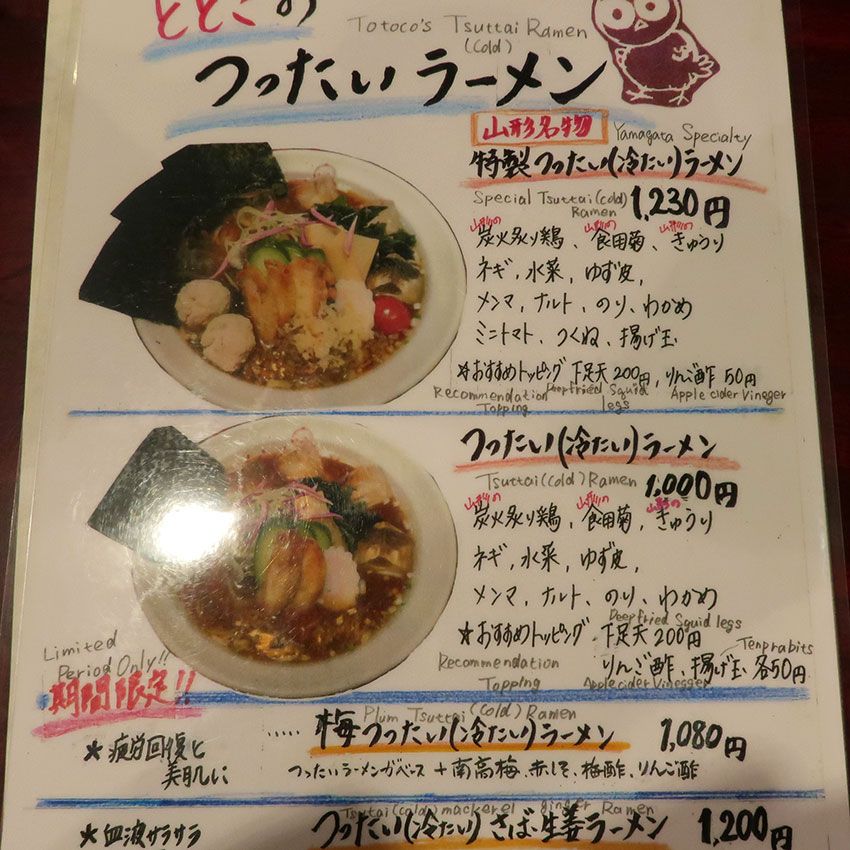 ととこの
Totoco's Tsuttai Ramen
(Cold)
つったいラーメン
山形名物 Yamagata Specialty
特製つったい(冷たい)ラーメン
Special Tsuttai(cold)
Ramen 1,230円
山形の 山形の 山形の
炭火炙り鶏、食用菊、きゅうり
ネギ,水菜,ゆず皮,
メンマ,ナルト、のり、わかめ
ミニトマト、つくね、揚げ玉
*おすすめトッピング 下足天200円,りんご酢50円
Recommendation Deepfried Squid Apple cider Vineger
Topping legs
つったい(冷たい)ラーメン
Tsuttai(cold)Ramen 1,000円
山形の 山形の 山形の
炭火炙り鶏,食用菊,きゅうり
ネギ,水菜,ゆず皮,
メンマ,ナルト、のり、わかめ
Deepfried Squid legs
★おすすめトッピング 下足天200円
Recommendation りんご酢、揚げ玉 各50円
Tenprabits
Topping Applecider Vinegger
Limited
Period Only!!
期間限定!!
Plum Tsuttai(cold)Ramen
.....梅つったい(冷たい)ラーメン 1,080円
★疲労回復と
美肌に
つったいラーメンがベース+南高梅、赤しそ、梅酢、りんご酢
Tsutai(cold)mackerel ginger Ramen
★血液サラサラ つったい(冷たい)さば・生姜ラーメン 1,200円